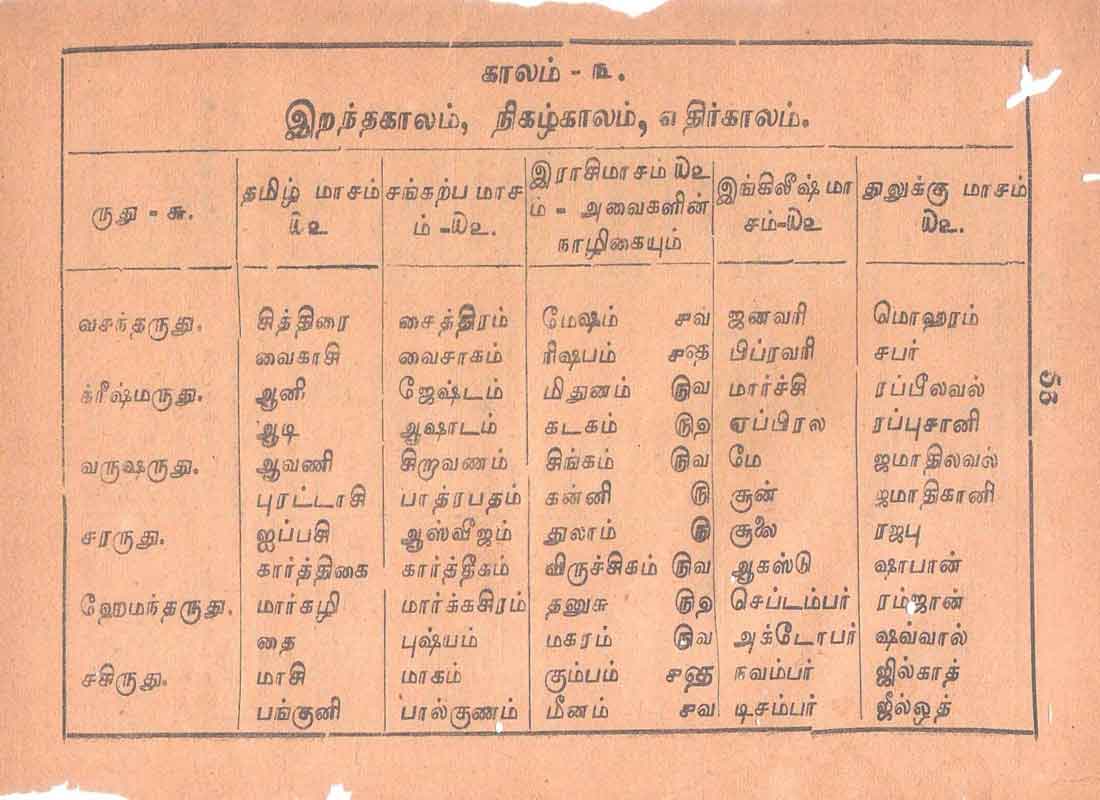 காலம் - ௩.
இறந்தகாலம், நிகழ்காலம், எதிர்காலம்.
ருது - ௬. தமிழ் மாசம் ௰௨ சங்கற்ப மாசம் -௰௨. இராசிமாசம் ௰௨ம் - அவைகளின் நாழிகையும் இங்கிலீஷ் மாசம்-௰௨ துலுக்கு மாசம் ௰௨.
வசந்தருது. சித்திரை சைத்திரம் மேஷம் ௪வ ஜனவரி மொஹரம்
வைகாசி வைசாகம் ரிஷபம் பிப்ரவரி சபர்
க்ரீஷ்மருது. ஆனி ஜேஷ்டம் மிதுனம் ௫வ மார்ச்சி ரப்பீலவல்
ஆடி ஆஷாடம் கடகம் ஏப்பிரல ரப்புசானி
வருஷருது. ஆவணி சிறவணம் சிங்கம் ௫வ மே ஜமாதிலவல்
புரட்டாசி பாத்ரபதம் கன்னி ௫ சூன் ஜமாதிகானி
சரருது. ஐப்பசி ஆஸ்வீஜம் துலாம் ௫ சூலை ரஜபு
கார்த்திகை கார்த்தீகம் விருச்சிகம் ௫வ ஆகஸ்டு ஷாபான்
ஹேமந்தருது. மார்கழி மார்க்கசிரம் தனுசு செப்டம்பர் ரம்ஜான்
தை புஷ்யம் மகரம் ௫வ அக்டோபர் ஷவ்வால்
சசிருது. மாசி மாகம் கும்பம் நவம்பர் ஜில்காத்
பங்குனி பால்குணம் மீனம் ௪வ டிசம்பர் ஜீல்ஒத்
53